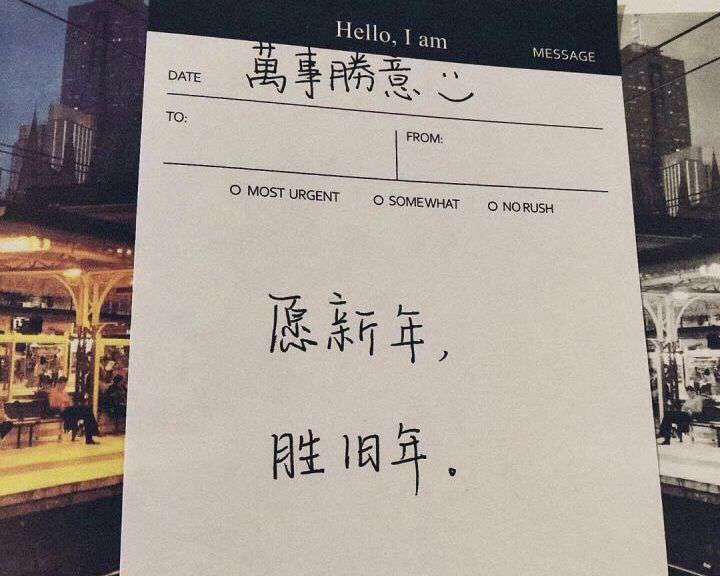 Hello, I am
MESSAGE
DATE 萬事勝意 :)
TO:
FROM:
O MOST URGENT O SOMEWHAT O NO RUSH
愿新年,
胜旧年。